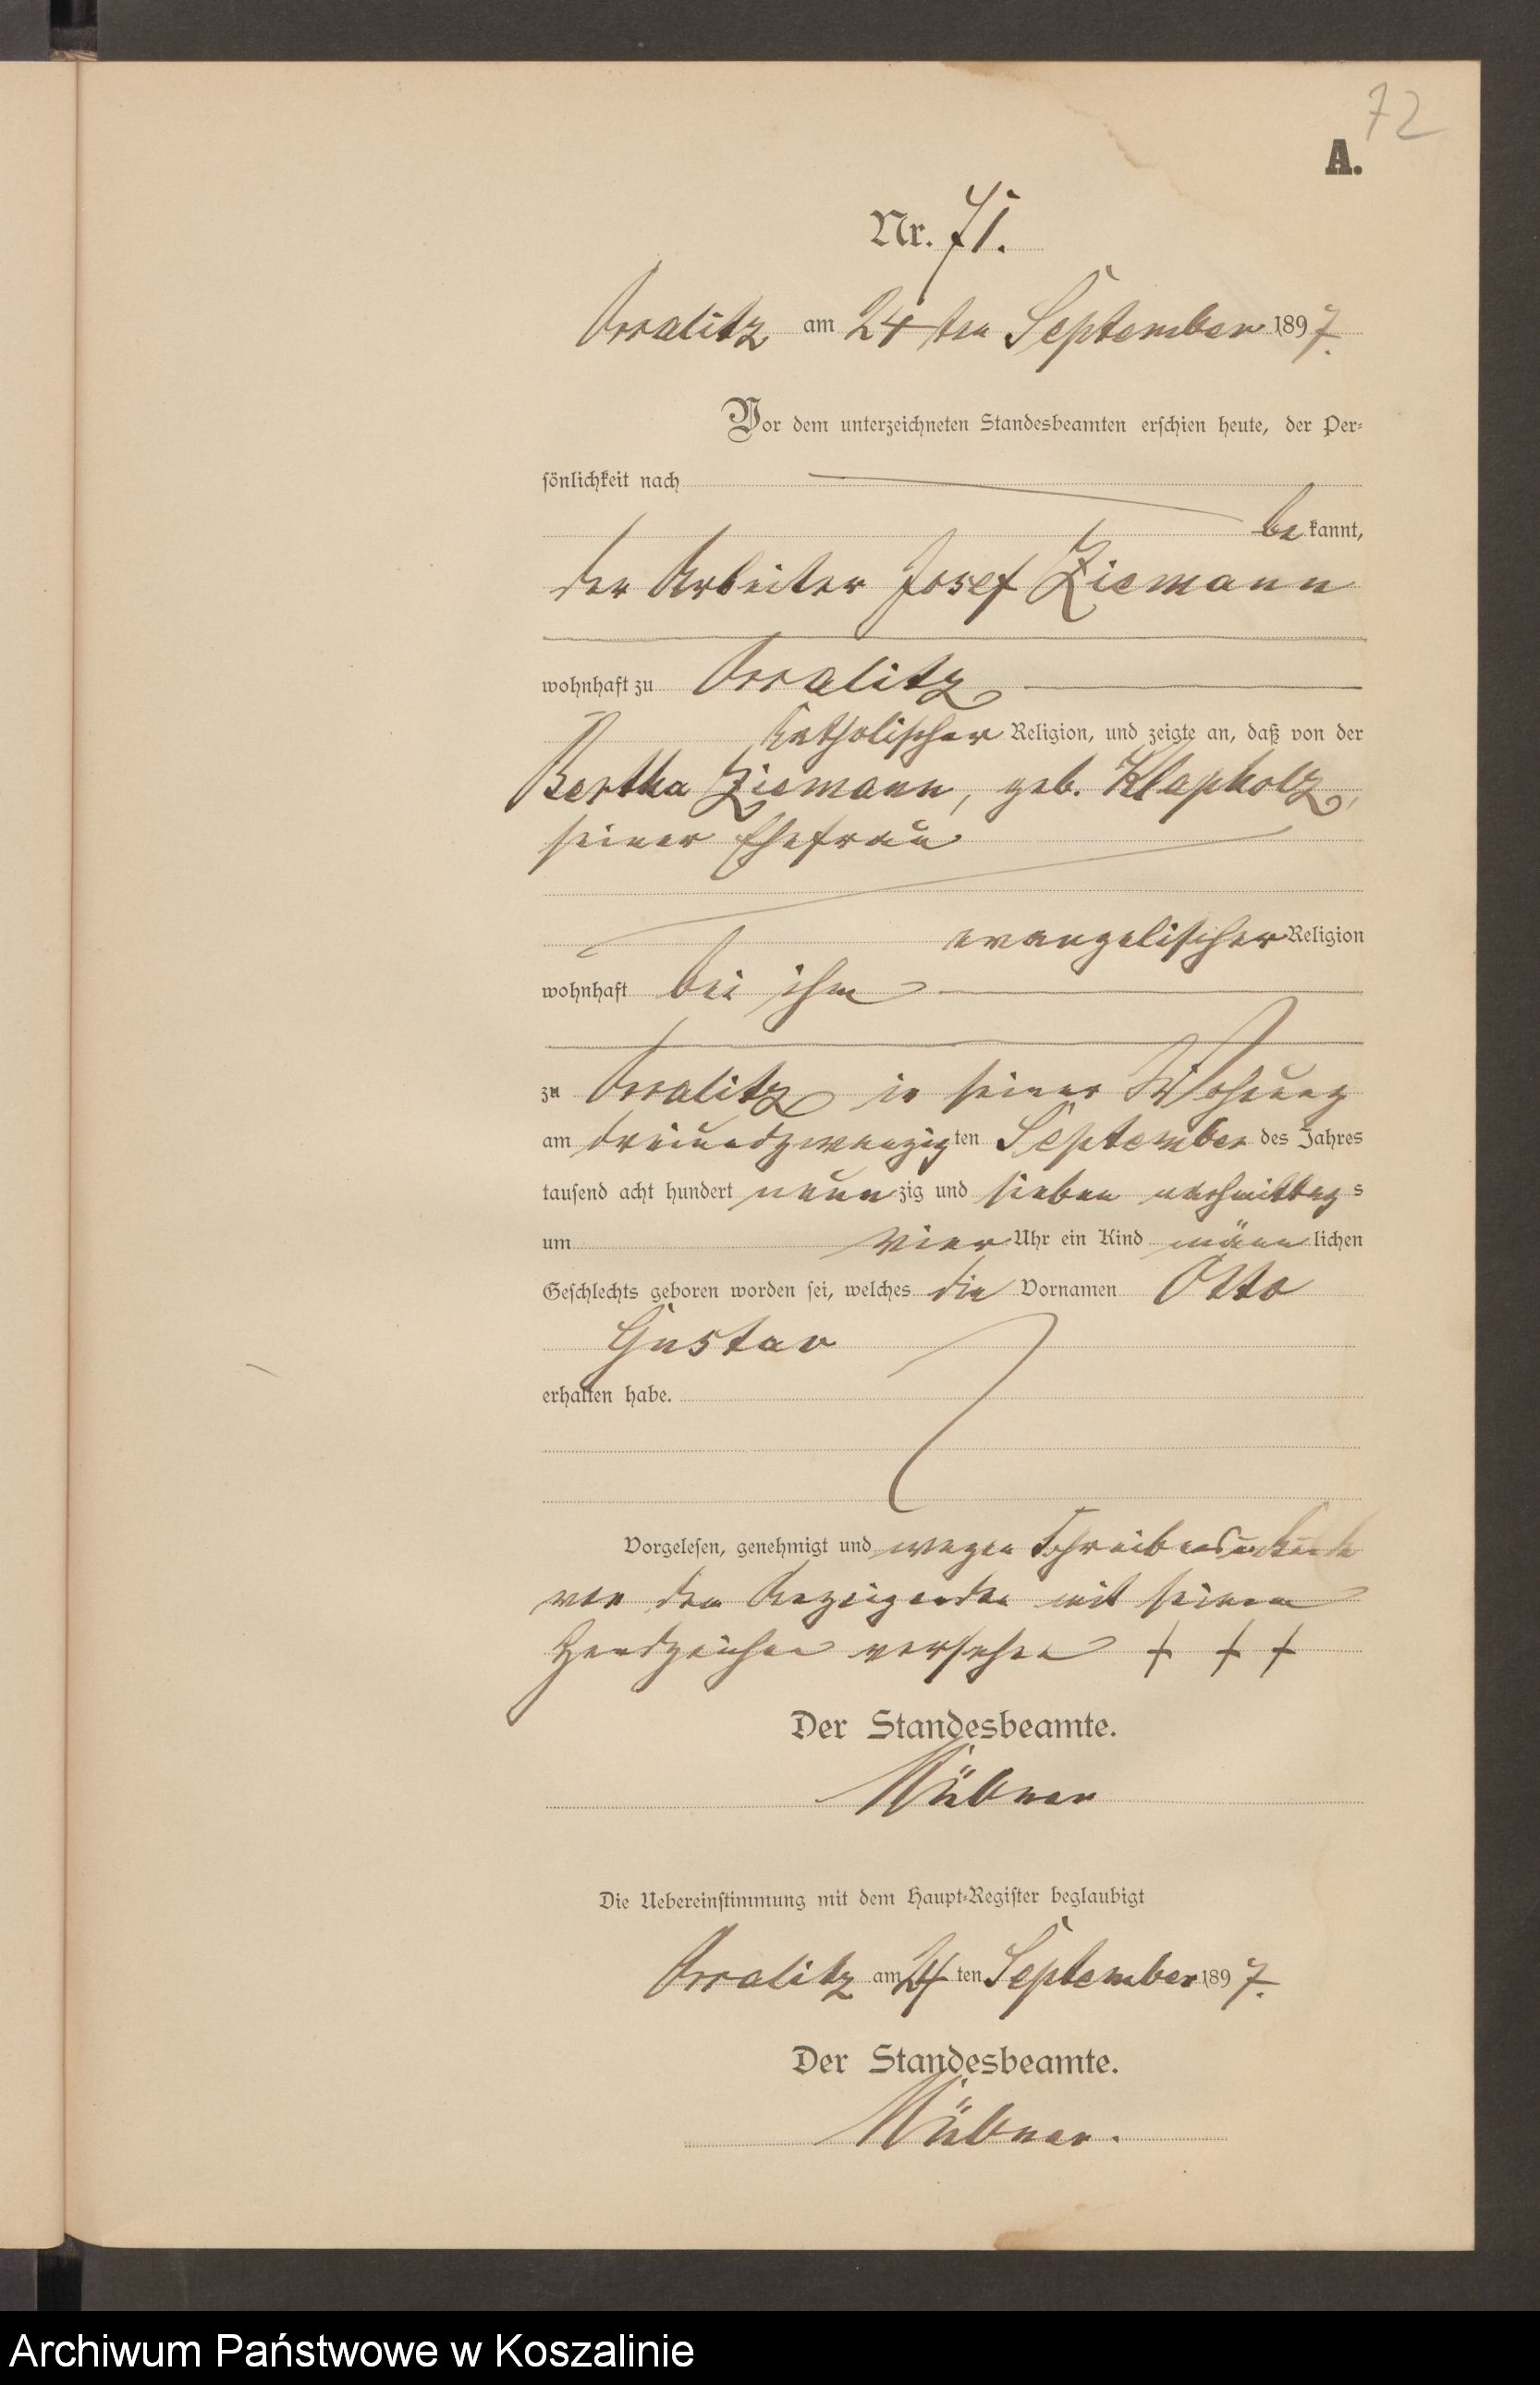 72
A.
Nr. 71.
Arralitz am 24ten September 1897.
Vor dem unterzeichneten Standesbeamten erschien heute, der Per-
sönlichkeit nach
bekannt,
der Arbeiter Josef Ziemann
wohnhaft zu
katholischer Religion, und zeigte an, daß von der
Bertha Ziemann, geb. Klapholz,
seiner Ehefrau
evangelischer Religion
wohnhaft bei ihm
zu in seiner Wohnung
am dreiundzwanzigten September des Jahres
tausend acht hundert neunzig und sieben nachmittags
um vier Uhr ein Kind männlichen
Geschlechts geboren worden sei, welches die Vornamen Otto
Gustav
erhalten habe.
Vorgelesen, genehmigt und wegen Schreibensunkunde
von dem Anzeigenden mit seinem
Handzeichen versehen + + +
Der Standesbeamte.
Die Uebereinstimmung mit dem Haupt-Register beglaubigt
am 24ten September 1897.
Der Standesbeamte.
Archiwum Państwowe w Koszalinie